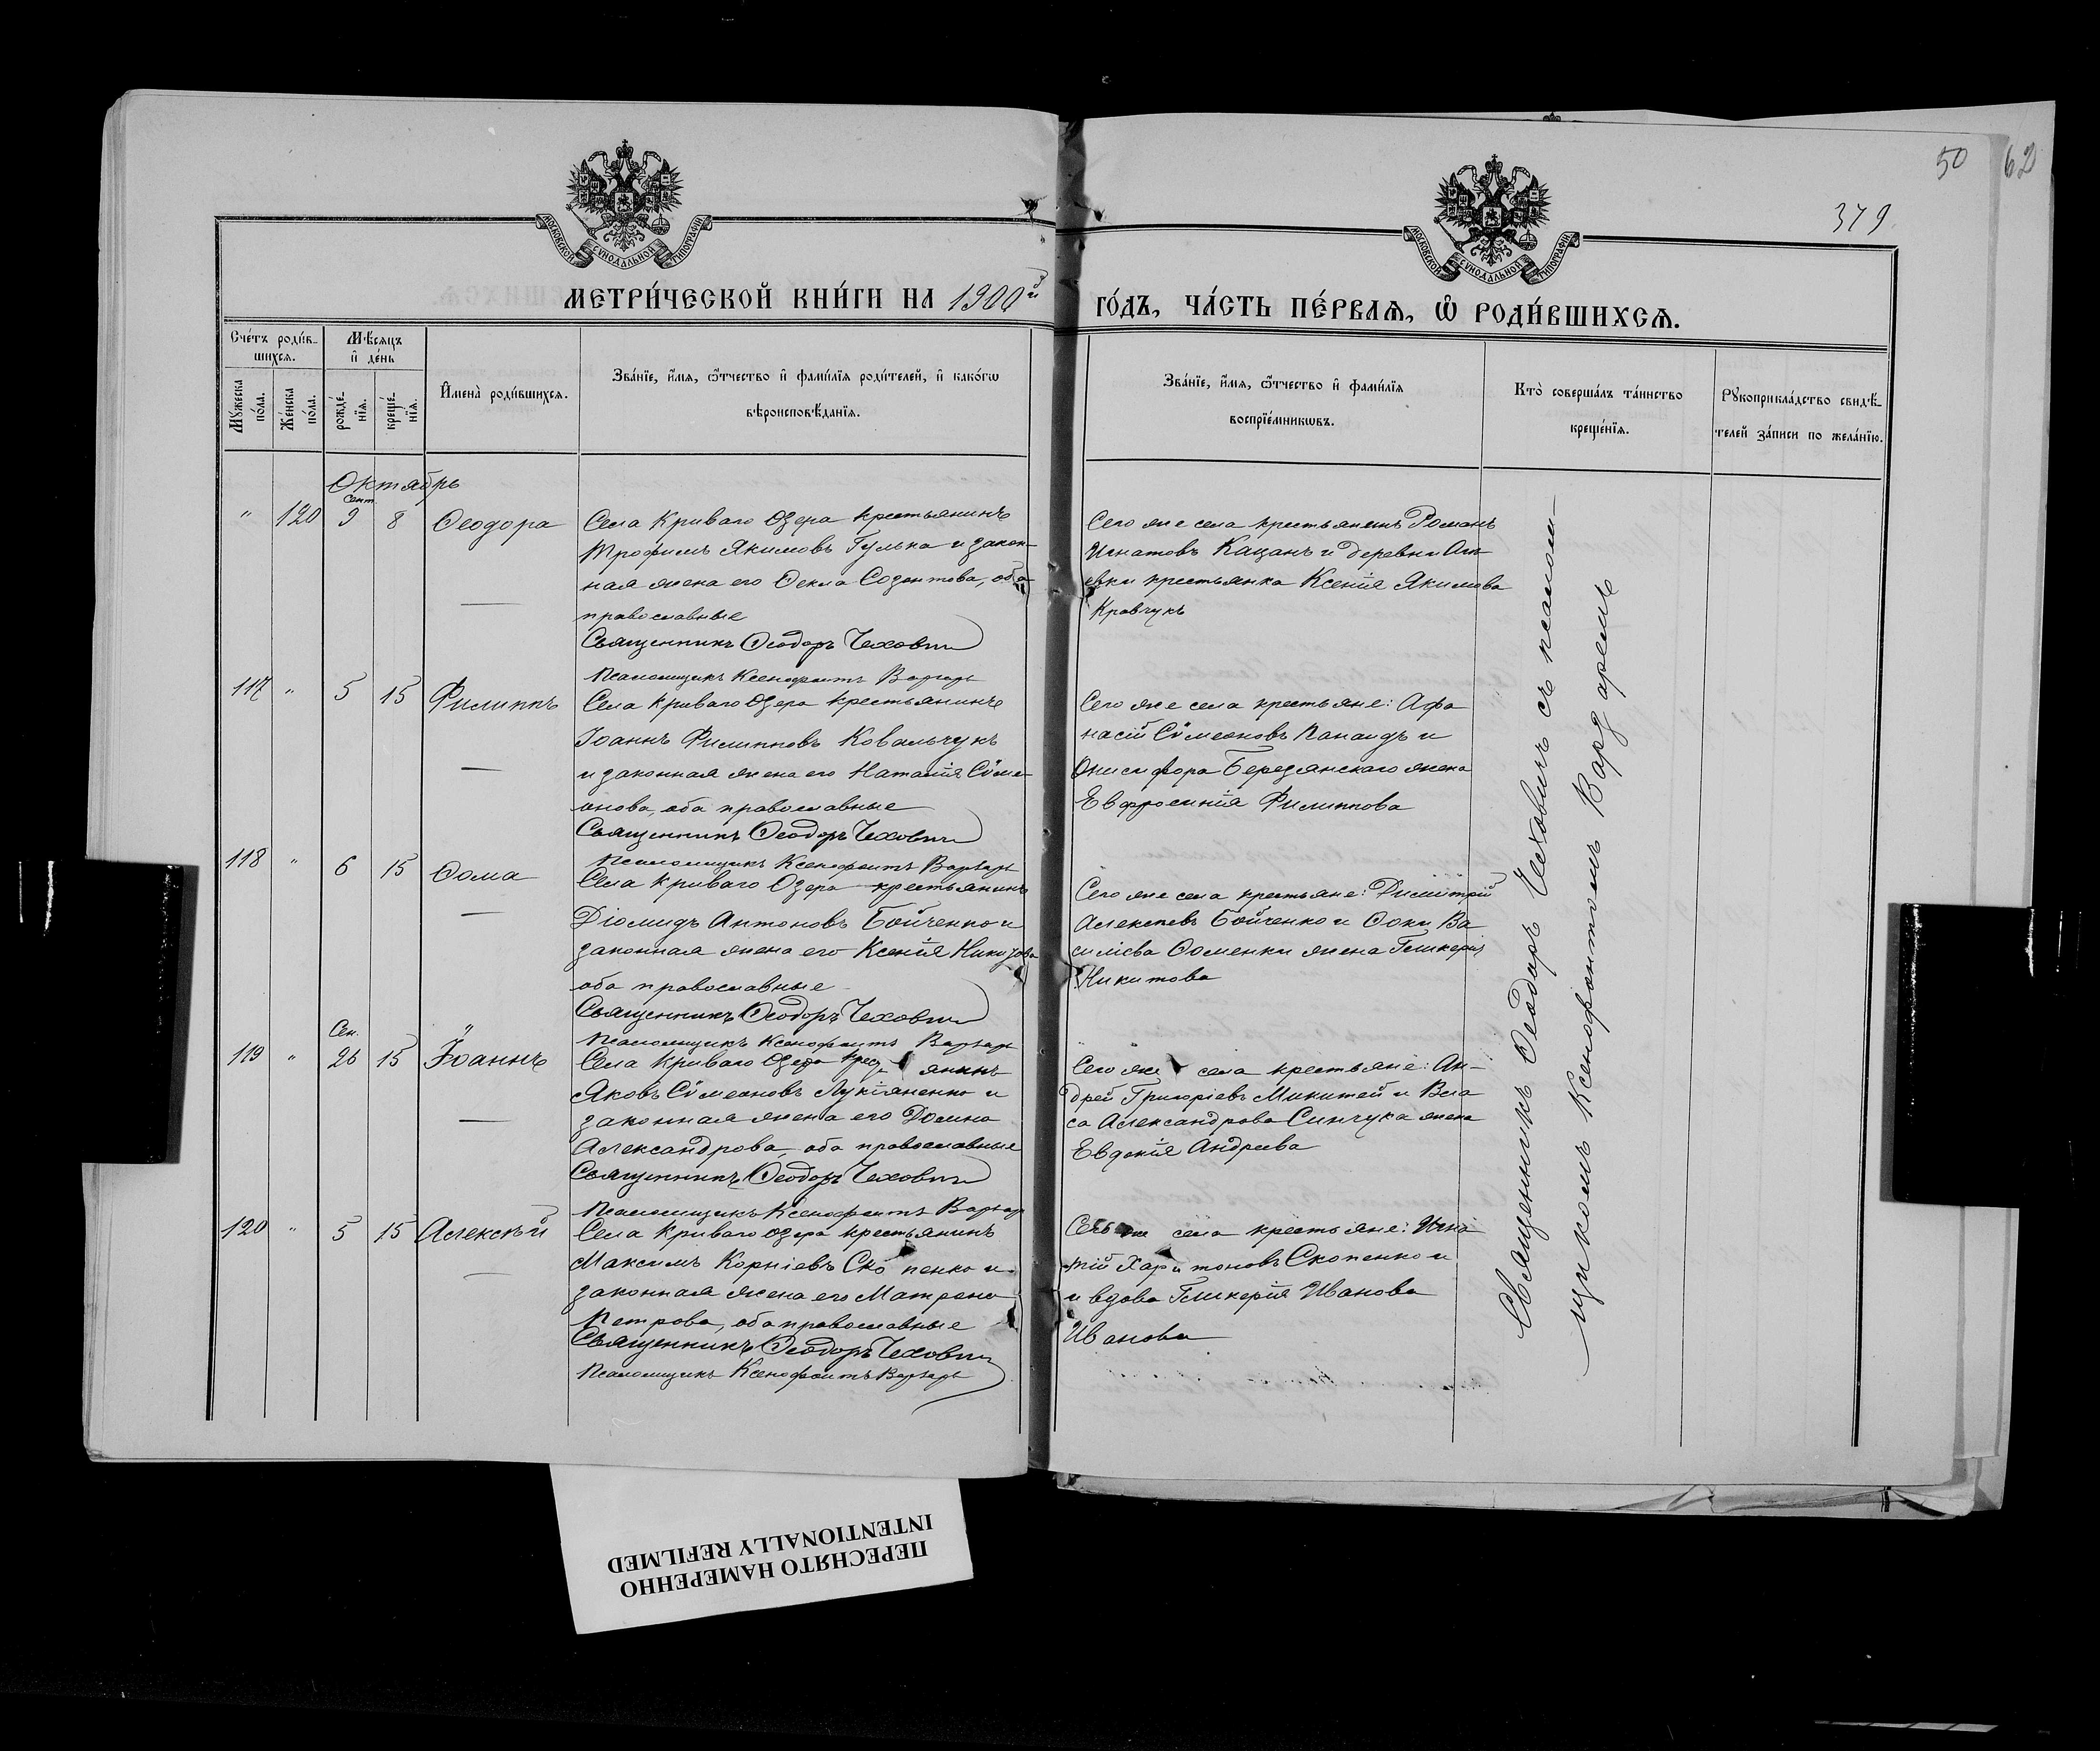 50
62
379
МОСКОВСКОЙ СѴНОДАЛЬНОЙ ТИПОГРАФІИ
МОСКОВСКОЙ СѴНОДАЛЬНОЙ ТИПОГРАФІИ
МЕТРИ́ЧЕСКОЙ КНИ́ГИ НА 1900й
ГО́ДЪ, ЧА́СТЬ ПЕ́РВАѦ, Ѽ РОДИ́ВШИХСѦ.
Сче́тъ роди́в-
шихсѧ.
Мѣ́сѧцъ
и҆ де́нь
Мꙋ́жеска
по́ла.
Же́нска
по́ла.
рожде́-
нїѧ.
креще́-
нїѧ.
И҆мена̀ роди́вшихсѧ.
Зва́нїе, и҆́мѧ, ѻ҆́тчество и҆ фами́лїѧ роди́телей, и҆ како́гѡ
вѣроисповѣ́данїѧ.
Зва́нїе, и҆́мѧ, ѻ҆́тчество и҆ фами́лїѧ
воспрїе́мникѡвъ.
Кто̀ соверша́лъ та́инство
креще́нїѧ.
Рꙋкоприкла́дство свидѣ́-
телей за́писи по жела́нїю.
Октябрь
Сент.
" 120 9 8 Ѳеодора
Села Криваго Озера крестьянинъ
Трофимъ Якимовъ Гулька и закон-
ная жена его Ѳекла Созонтова, оба
православные
Священникъ Ѳеодоръ Чехович
Псаломщикъ Ксенофонтъ Варзарь
Сего же села крестьянинъ Романъ
Игнатовъ Кацанъ и деревни
крестьянка Ксенія Якимова
Кравчукъ
117 " 5 15 Филиппъ
Села Криваго Озера крестьянинъ
Іоаннъ Филипповъ Ковальчукъ
и законная жена его Наталія Сѵме-
онова, оба православные
Священникъ Ѳеодоръ Чехович
Псаломщикъ Ксенофонтъ Варзарь
Сего же села крестьяне: Афа
насій Сѵмеоновъ и
Онисифора Березянскаго жена
Евфросинія Филиппова
118 " 6 15 Ѳома
Села Криваго Озера крестьянинъ
Діомидъ Антоновъ Бойченко и
законная жена его Ксенія
оба православные
Священникъ Ѳеодоръ Чехович
Псаломщикъ Ксенофонтъ Варзарь
Сего же села крестьяне: Димитрій
Алексѣевъ Бойченко и Ѳоки Ва
силіева Ѳоменки жена Гликерія
Никитова
Сен.
119 " 26 15 Іоаннъ
Села Криваго Озера крест янинъ
Яковъ Сѵмеоновъ Лукіяненко и
законная жена его Домна
Александрова, оба православные
Священникъ Ѳеодоръ Чехович
Псаломщикъ Ксенофонтъ Варзарь
Сего же села крестьяне: Ан-
дрей Григоріевъ Микитей и Вла
са Александрова Синчука жена
Евдокія Андреева
120 " 5 15 Алексѣй
Села Криваго озера крестьянинъ
Максимъ Корніевъ Ско пенко и
законная жена его Матрона
Петрова, оба православные
Священникъ Ѳеодоръ Чехович
Псаломщикъ Ксенофонтъ Варзарь
Сего же села крестьяне: Игна
тій Харитоновъ Скопенко и
и вдова Гликерія Иванова
Иванова
Священникъ Ѳеодоръ Чеховичъ съ псалом-
щикомъ Ксенофонтомъ Варзаремъ
ПЕРЕСНЯТО НАМЕРЕННО
INTENTIONALLY REFILMED